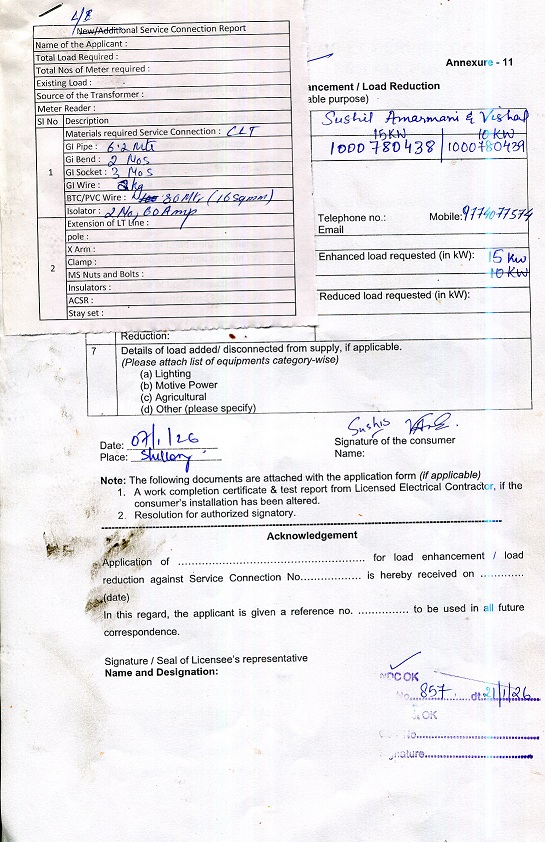 4/8
New/Additional Service Connection Report
Name of the Applicant :
Total Load Required :
Total Nos of Meter required :
Existing Load :
Source of the Transformer :
Meter Reader :
Sl No Description
Materials required Service Connection : CLT
GI Pipe : 6.2 Mtr
GI Bend : 2 Nos
GI Socket : 3 Nos
1 GI Wire : 2kg
BTC/PVC Wire : 30Mtr (16sqmm)
Isolator : 2 No, 60 Amp
Extension of LT Line :
pole :
X Arm :
Clamp :
2 MS Nuts and Bolts :
Insulators :
ACSR :
Stay set :
Annexure - 11
ancement / Load Reduction
able purpose)
Sushil Amarmani & Vishal
15KW 10 KW
1000780438 1000780439
Telephone no.: Mobile:9774077574
Email
Enhanced load requested (in kW): 15 KW
10 KW
Reduced load requested (in kW):
Reduction:
7 Details of load added/ disconnected from supply, if applicable.
(Please attach list of equipments category-wise)
(a) Lighting
(b) Motive Power
(c) Agricultural
(d) Other (please specify)
Date: 07/1/26
Place: Shillong
Sushil
Signature of the consumer
Name:
Note: The following documents are attached with the application form (if applicable)
1. A work completion certificate & test report from Licensed Electrical Contractor, if the
consumer's installation has been altered.
2. Resolution for authorized signatory.
Acknowledgement
Application of .................................................. for load enhancement / load
reduction against Service Connection No................ is hereby received on ............
(date)
In this regard, the applicant is given a reference no. .............. to be used in all future
correspondence.
Signature / Seal of Licensee's representative
Name and Designation:
NDC OK
No. 857 dt. 21/1/26
OK
No.
Signature